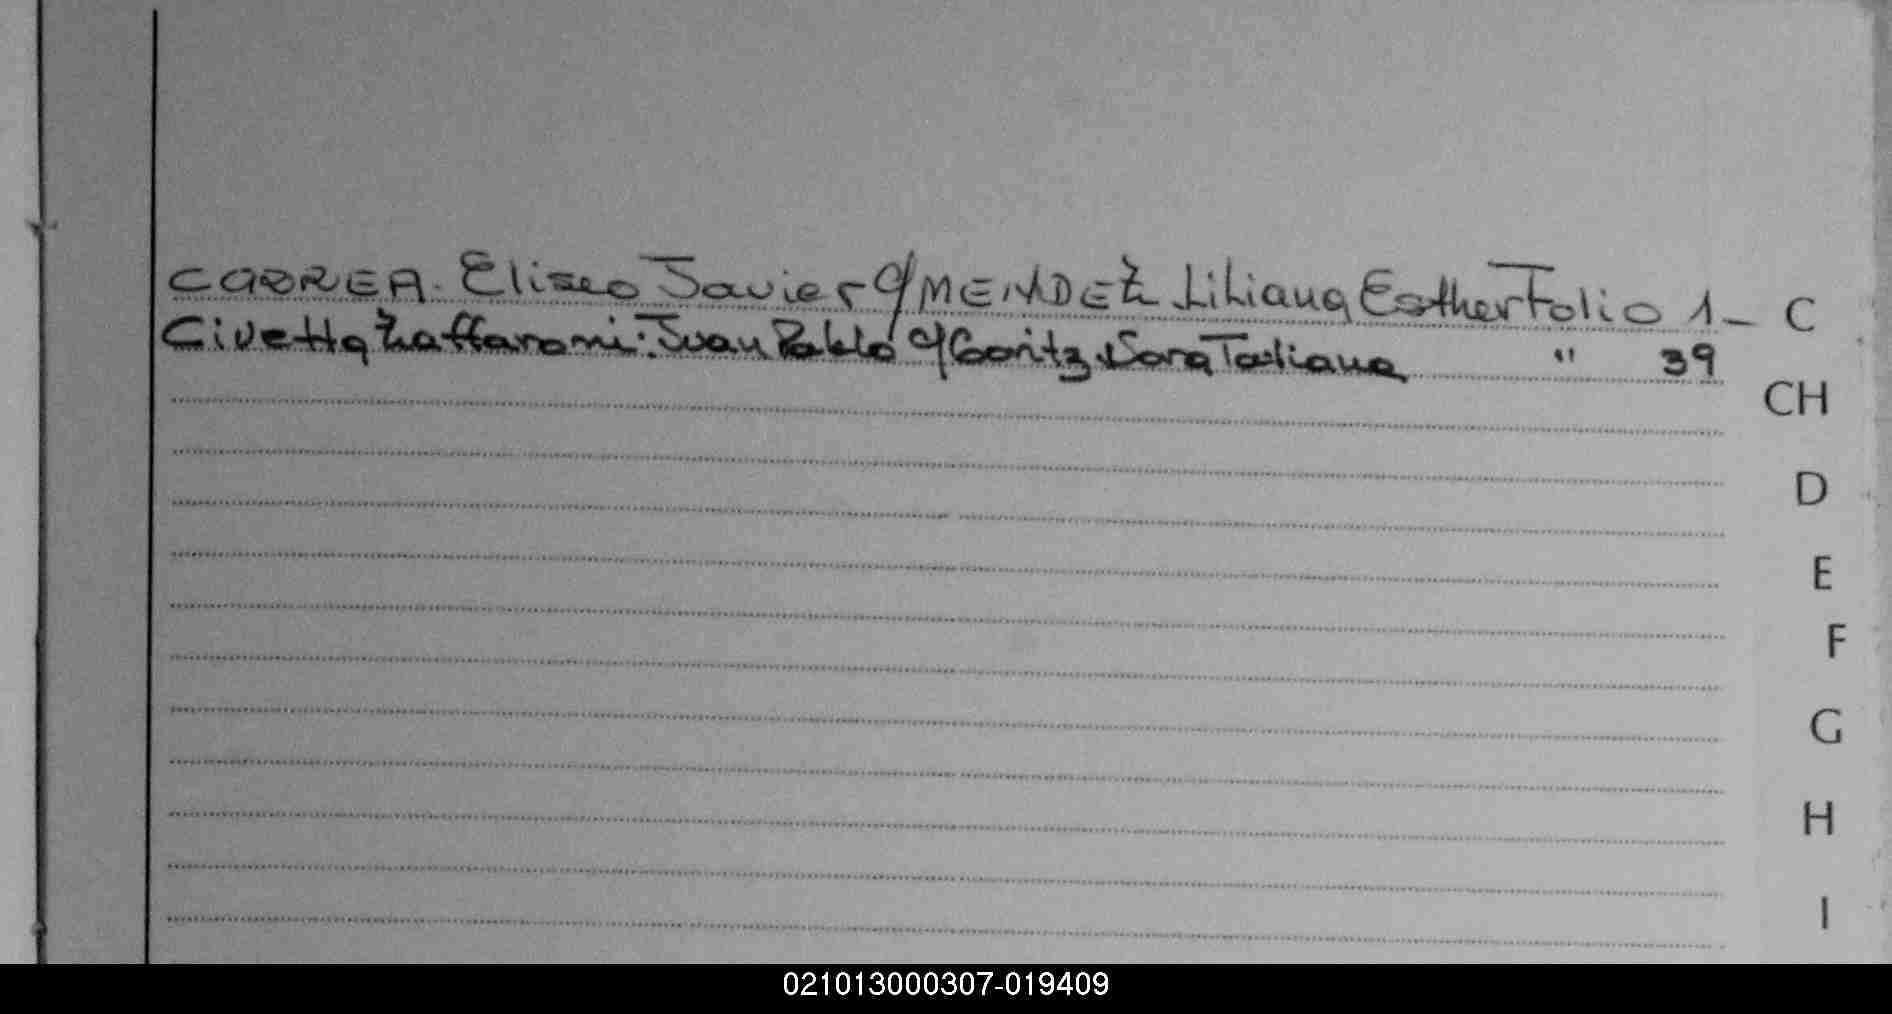 CORREA. Eliseo Javier c/ MENDEZ Liliana Esther Folio 1-
Civetta Zaffaroni: Juan Pablo c/ Goritz, Sara Tatiana " 39
C
CH
D
E
F
G
H
I
021013000307-019409